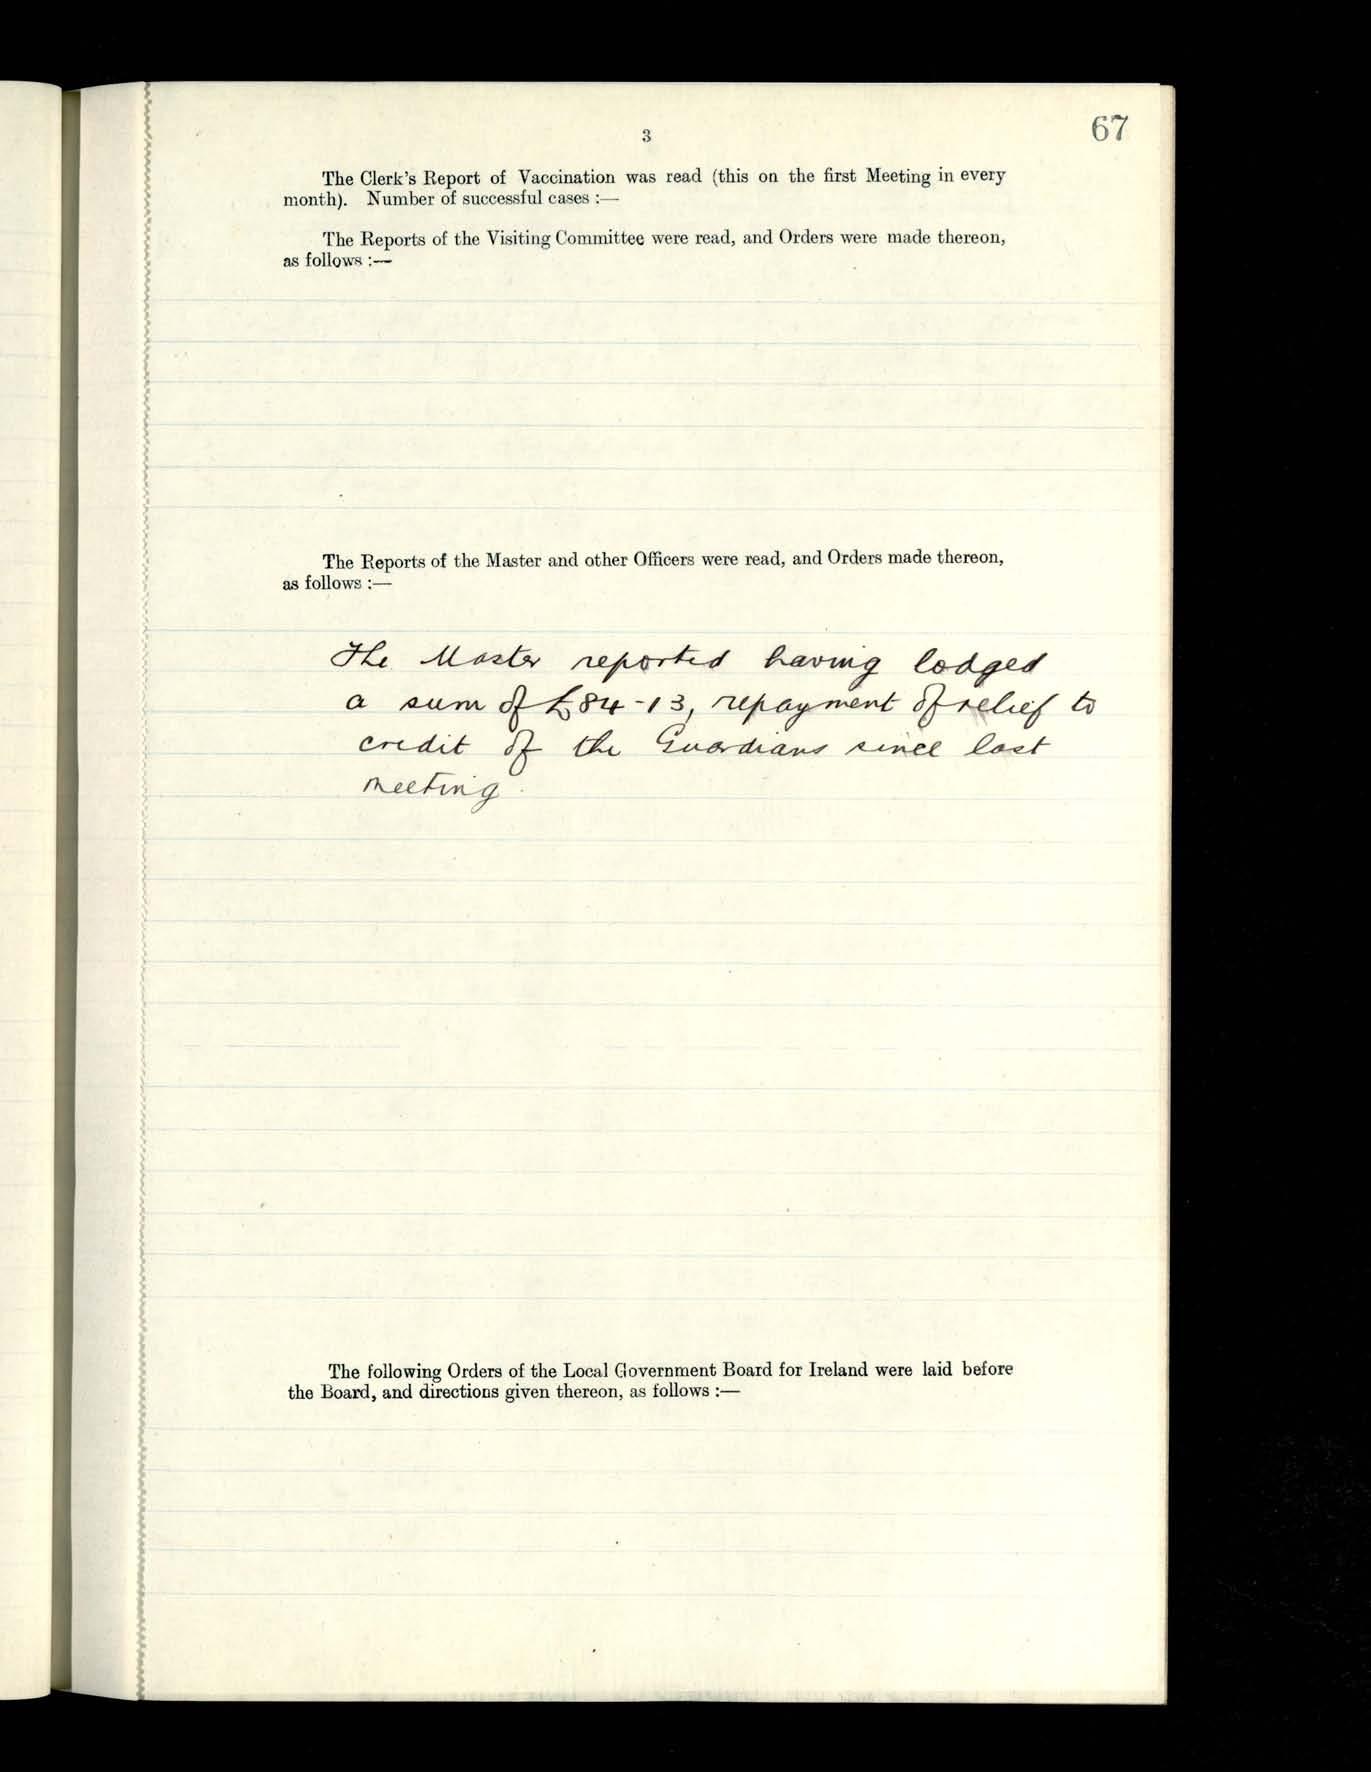 67
3
The Clerk's Report of Vaccination was read (this on the first Meeting in every
month). Number of successful cases :—
The Reports of the Visiting Committee were read, and Orders were made thereon,
as follows :—
The Reports of the Master and other Officers were read, and Orders made thereon,
as follows :—
The Master reported having lodged
a sum of £84-13, repayment of relief to
credit of the Guardians since last
meeting
The following Orders of the Local Government Board for Ireland were laid before
the Board, and directions given thereon, as follows :—